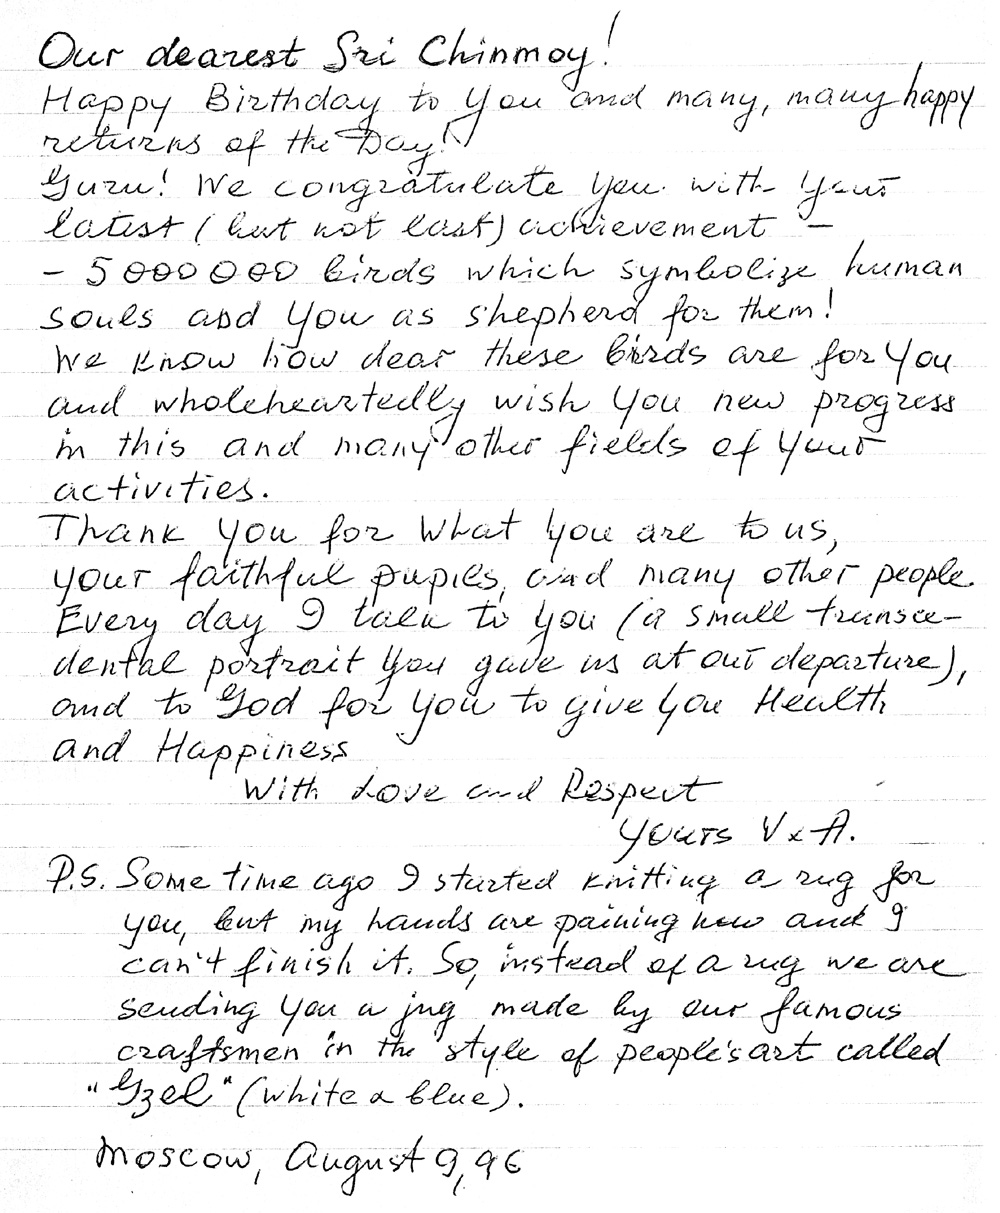 Our dearest Sri Chinmoy!
Happy Birthday to You and many, many happy
returns of the Day!
Guru! We congratulate You with Your
latest (but not last) achievement –
– 5 000 000 birds which symbolize human
souls and You as shepherd for them!
We know how dear these birds are for You
and wholeheartedly wish You new progress
in this and many other fields of Your
activities.
Thank You for what You are to us,
your faithful pupils, and many other people.
Every day I talk to You (a small transce-
dental portrait You gave us at our departure),
and to God for You to give You Health
and Happiness
With Love and Respect
Yours V & A.
P.S. Some time ago I started knitting a rug for
You, but my hands are paining now and I
can't finish it. So, instead of a rug we are
sending You a jug made by our famous
craftsmen in the style of people's art called
"Gzel" (white & blue).
Moscow, August 9, 96